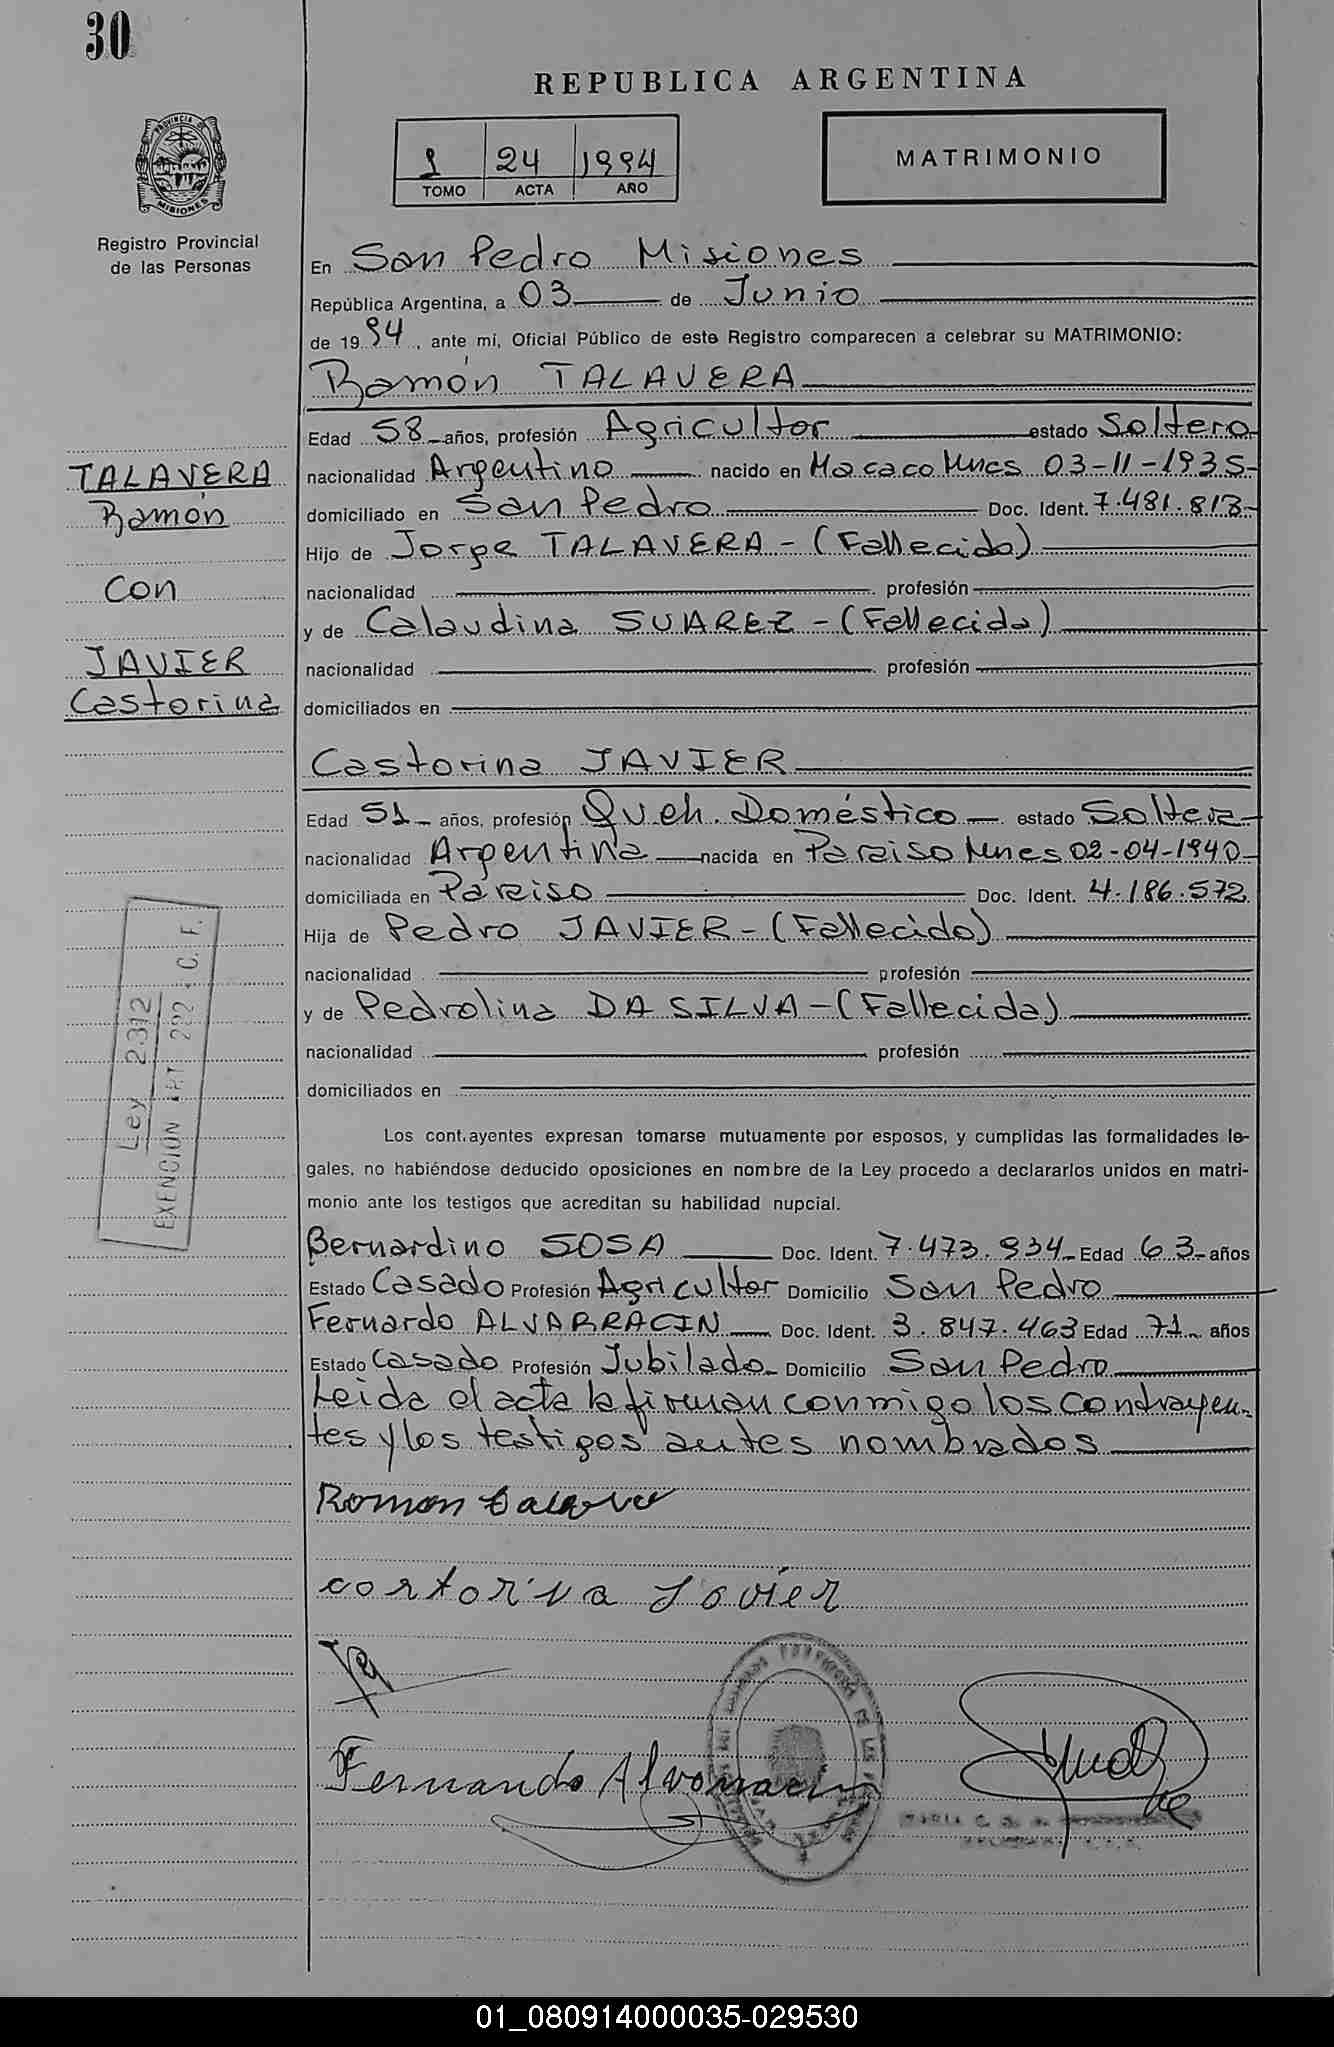 30
REPUBLICA ARGENTINA
PROVINCIA DE
MISIONES
Registro Provincial
de las Personas
1 24 1994
TOMO ACTA AÑO
MATRIMONIO
En San Pedro Misiones
República Argentina, a 03 de Junio
de 1994, ante mí, Oficial Público de este Registro comparecen a celebrar su MATRIMONIO:
Ramón TALAVERA
Edad 58 años, profesión Agricultor estado Soltero
nacionalidad Argentino nacido en Macaco Mnes 03-11-1935-
domiciliado en San Pedro Doc. Ident. 7.481.813-
Hijo de Jorge TALAVERA - (Fallecido)
nacionalidad profesión
y de Calaudina SUAREZ - (Fallecida)
nacionalidad profesión
domiciliados en
TALAVERA
Ramón
Con
JAVIER
Castorina
Castorina JAVIER
Edad 51 años, profesión Queh. Doméstico estado Soltera
nacionalidad Argentina nacida en Paraiso Mnes 02-04-1940-
domiciliada en Paraiso Doc. Ident. 4.186.572
Hija de Pedro JAVIER - (Fallecido)
nacionalidad profesión
y de Pedrolina DA SILVA - (Fallecida)
nacionalidad profesión
domiciliados en
Ley 2312
EXENCION ART 292 C. F.
Los cont.ayentes expresan tomarse mutuamente por esposos, y cumplidas las formalidades le-
gales, no habiéndose deducido oposiciones en nombre de la Ley procedo a declararlos unidos en matri-
monio ante los testigos que acreditan su habilidad nupcial.
Bernardino SOSA Doc. Ident. 7.473.934- Edad 63- años
Estado Casado Profesión Agricultor Domicilio San Pedro
Fernardo ALVARRACIN Doc. Ident. 3.847.463 Edad 71- años
Estado Casado Profesión Jubilado- Domicilio San Pedro
Leida el acta la firman conmigo los Contrayen-
tes y los testigos antes nombrados
Romon talavera
cortoriva Javier
Fernando Alvorracin
MARIA C.
01_080914000035-029530